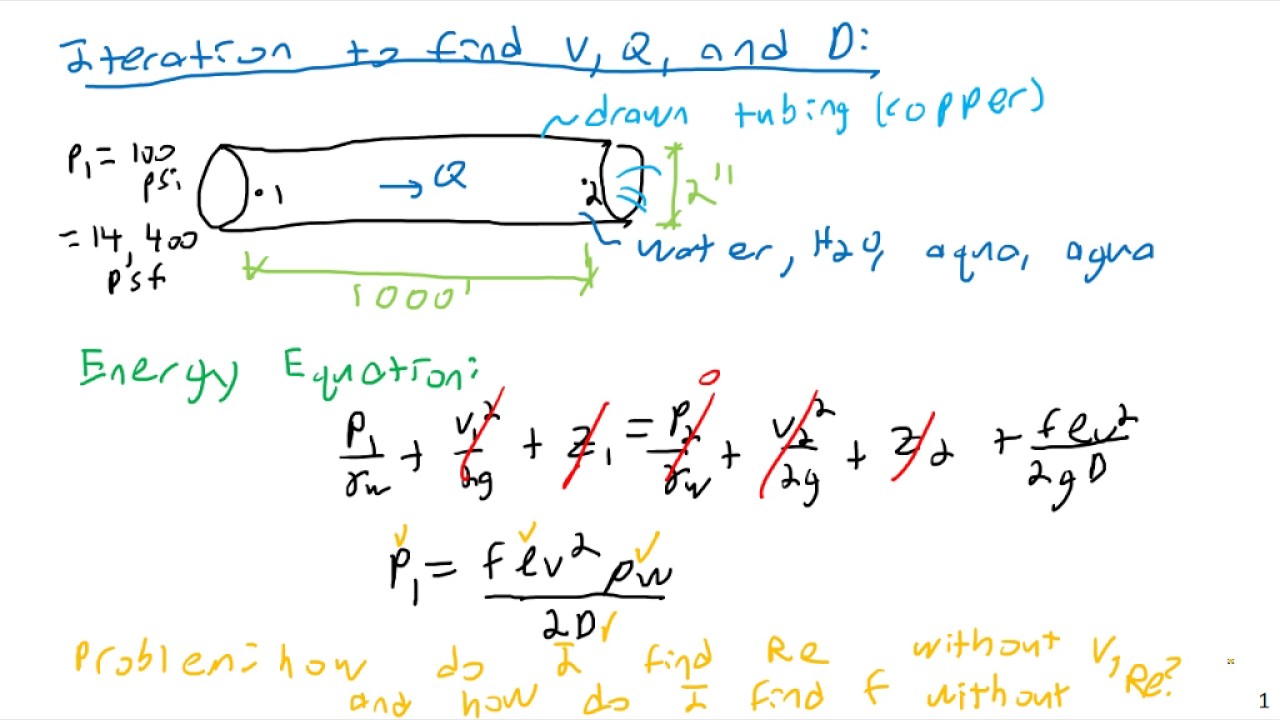 Iteration to find V, Q, and D:
~drawn tubing (copper)
P₁ = 100
psi
= 14,400
psf
·1
→ Q
·2
2"
water, H₂O, aqua, agua
1000'
Energy Equation:
P₁/γw + V₁²/2g + Z₁ = P₂/γw + V₂²/2g + Z₂ + flv²/2gD
0
P₁ = flv²ρw/2D
Problem: how do I find Re without V,
and how do I find f without Re?
1